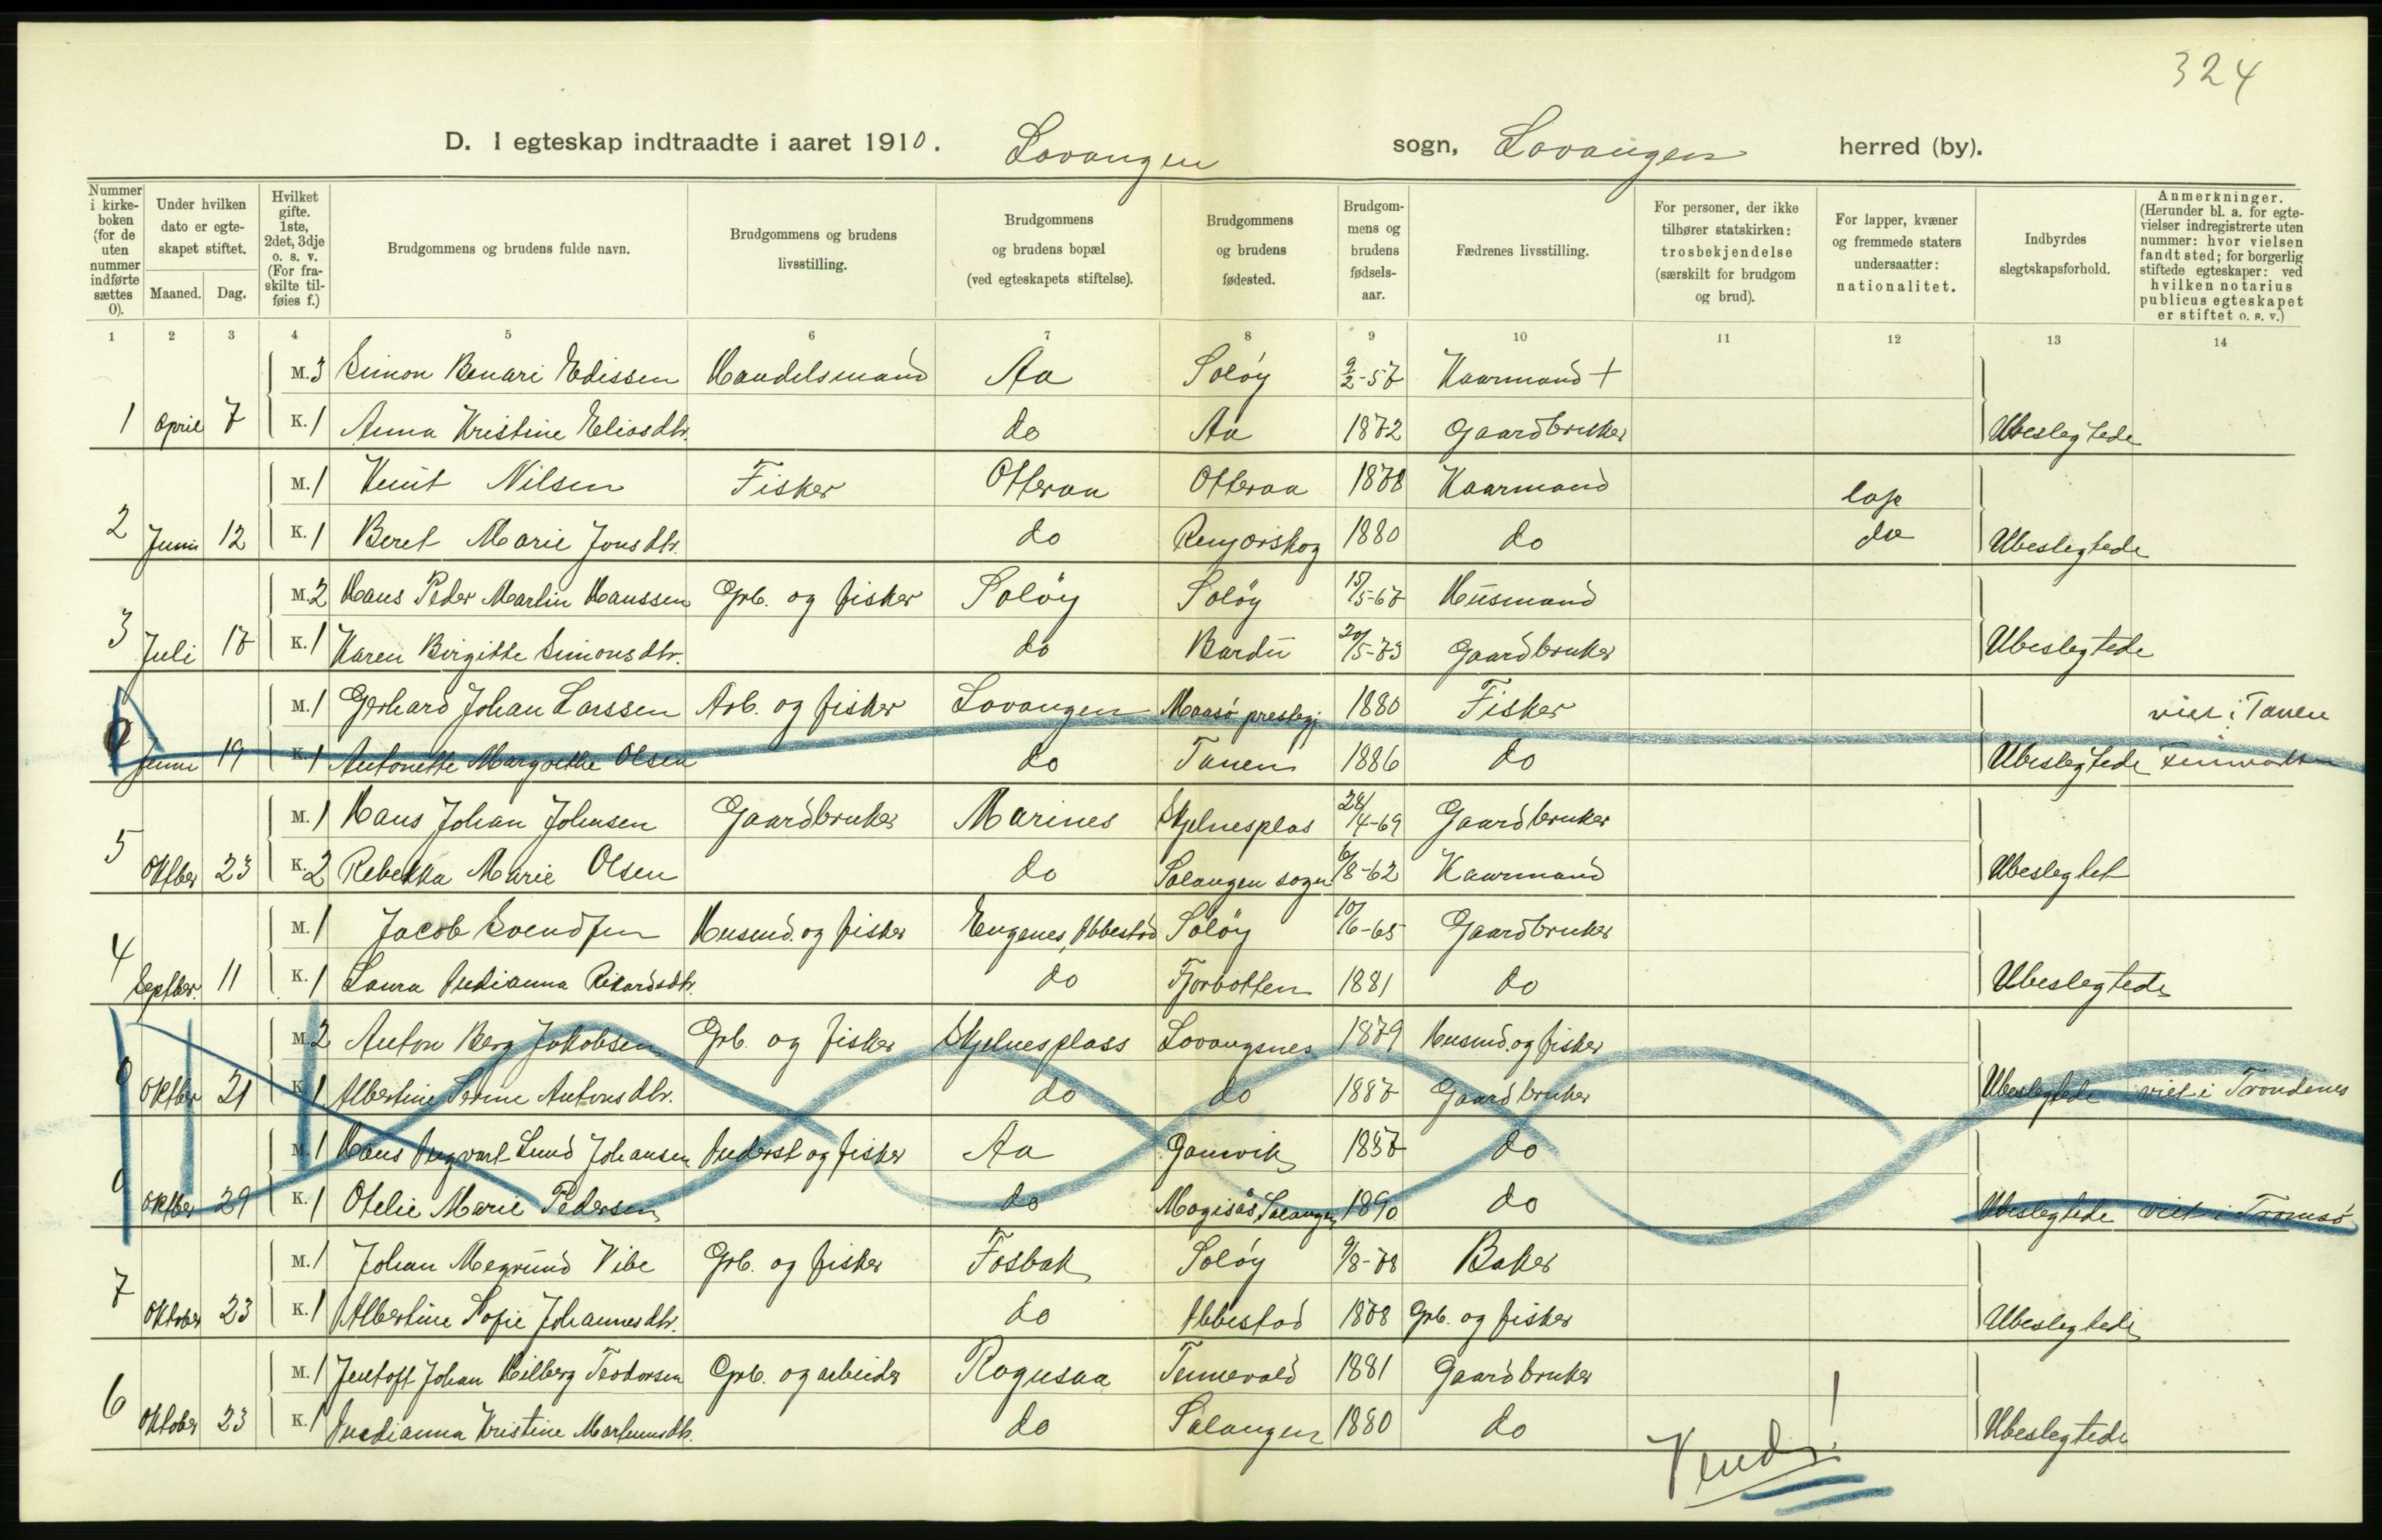 324
D. I egteskap indtraadte i aaret 1910. Lavangen sogn, Lavangen herred (by).
Nummer i kirkeboken (for de uten nummer indførte sættes 0).
Under hvilken dato er egteskapet stiftet.
Maaned. Dag.
Hvilket gifte. 1ste, 2det, 3dje o. s. v. (For fraskilte tilføies f.)
Brudgommens og brudens fulde navn.
Brudgommens og brudens livsstilling.
Brudgommens og brudens bopæl (ved egteskapets stiftelse).
Brudgommens og brudens fødested.
Brudgommens og brudens fødselsaar.
Fædrenes livsstilling.
For personer, der ikke tilhører statskirken: trosbekjendelse (særskilt for brudgom og brud).
For lapper, kvæner og fremmede staters undersaatter: nationalitet.
Indbyrdes slegtskapsforhold.
Anmerkninger. (Herunder bl. a. for egtevielser indregistrerte uten nummer: hvor vielsen fandt sted; for borgerlig stiftede egteskaper: ved hvilken notarius publicus egteskapet er stiftet o. s. v.)
1 2 3 4 5 6 7 8 9 10 11 12 13 14
M. 3 Simon Benari Edissen Handelsmand Aa Soløy 9/2-57 Kaarmand +
1 April 7 K. 1 Anna Kristine Eliasdtr. do Aa 1872 Gaardbruker Ubeslegtede
M. 1 Knut Nilsen Fisker Otteraa Otteraa 1878 Kaarmand lap
2 Juni 12 K. 1 Beret Marie Jonsdtr. do Renjorskog 1880 do do Ubeslegtede
M. 2 Hans Peder Martin Hanssen Grb. og fisker Soløy Soløy 15/5-67 Husmand
3 Juli 17 K. 1 Karen Birgitte Simonsdtr. do Bardu 20/5-73 Gaardbruker Ubeslegtede
M. 1 Gerhard Johan Larssen Arb. og fisker Lavangen Maasø prestegj 1880 Fisker viet i Tanen
0 Juni 19 K. 1 Antonette Margrethe Olsen do Tanen 1886 do Ubeslegtede Finmarken
M. 1 Hans Johan Johnsen Gaardbruker Marines Skjelnesplas 24/4-69 Gaardbruker
5 Oktber 23 K. 2 Rebekka Marie Olsen do Salangen sogn 6/8-62 Kaarmand Ubeslegtet
M. 1 Jacob Svendsen Husmd. og fisker Engenes, Ibbestad Soløy 10/6-65 Gaardbruker
4 Septber. 11 K. 1 Laura Indianna Rikardsdtr. do Fjordbotten 1881 do Ubeslegtede
M. 2 Anton Berg Jakobsen Grb. og fisker Skjelnesplass Lavangsnes 1879 Husmd. og fisker
0 Oktber 21 K. 1 Albertine Serine Antonsdtr. do do 1887 Gaardbruker Ubeslegtede viet i Trondenes
M. 1 Hans Ingvart Lund Johansen Inderst og fisker Aa Gamvik 1887 do
0 Oktber 29 K. 1 Otelie Marie Pedersen do Salangen 1890 do Ubeslegtede viet i Tromsø
M. 1 Johan Megrund Vibe Grb. og fisker Fosbak Soløy 9/8-78 Baker
7 Oktober 23 K. 1 Albertine Sofie Johannesdtr. do Ibbestad 1878 Grb. og fisker Ubeslegtede
M. 1 Jentoft Johan Hilberg Teodorsen Grb. og arbeider Rogusaa Tennevold 1881 Gaardbruker
6 Oktober 23 K. 1 Indianna Kristine Martinusdtr. do Salangen 1880 do Ubeslegtede
Vend!